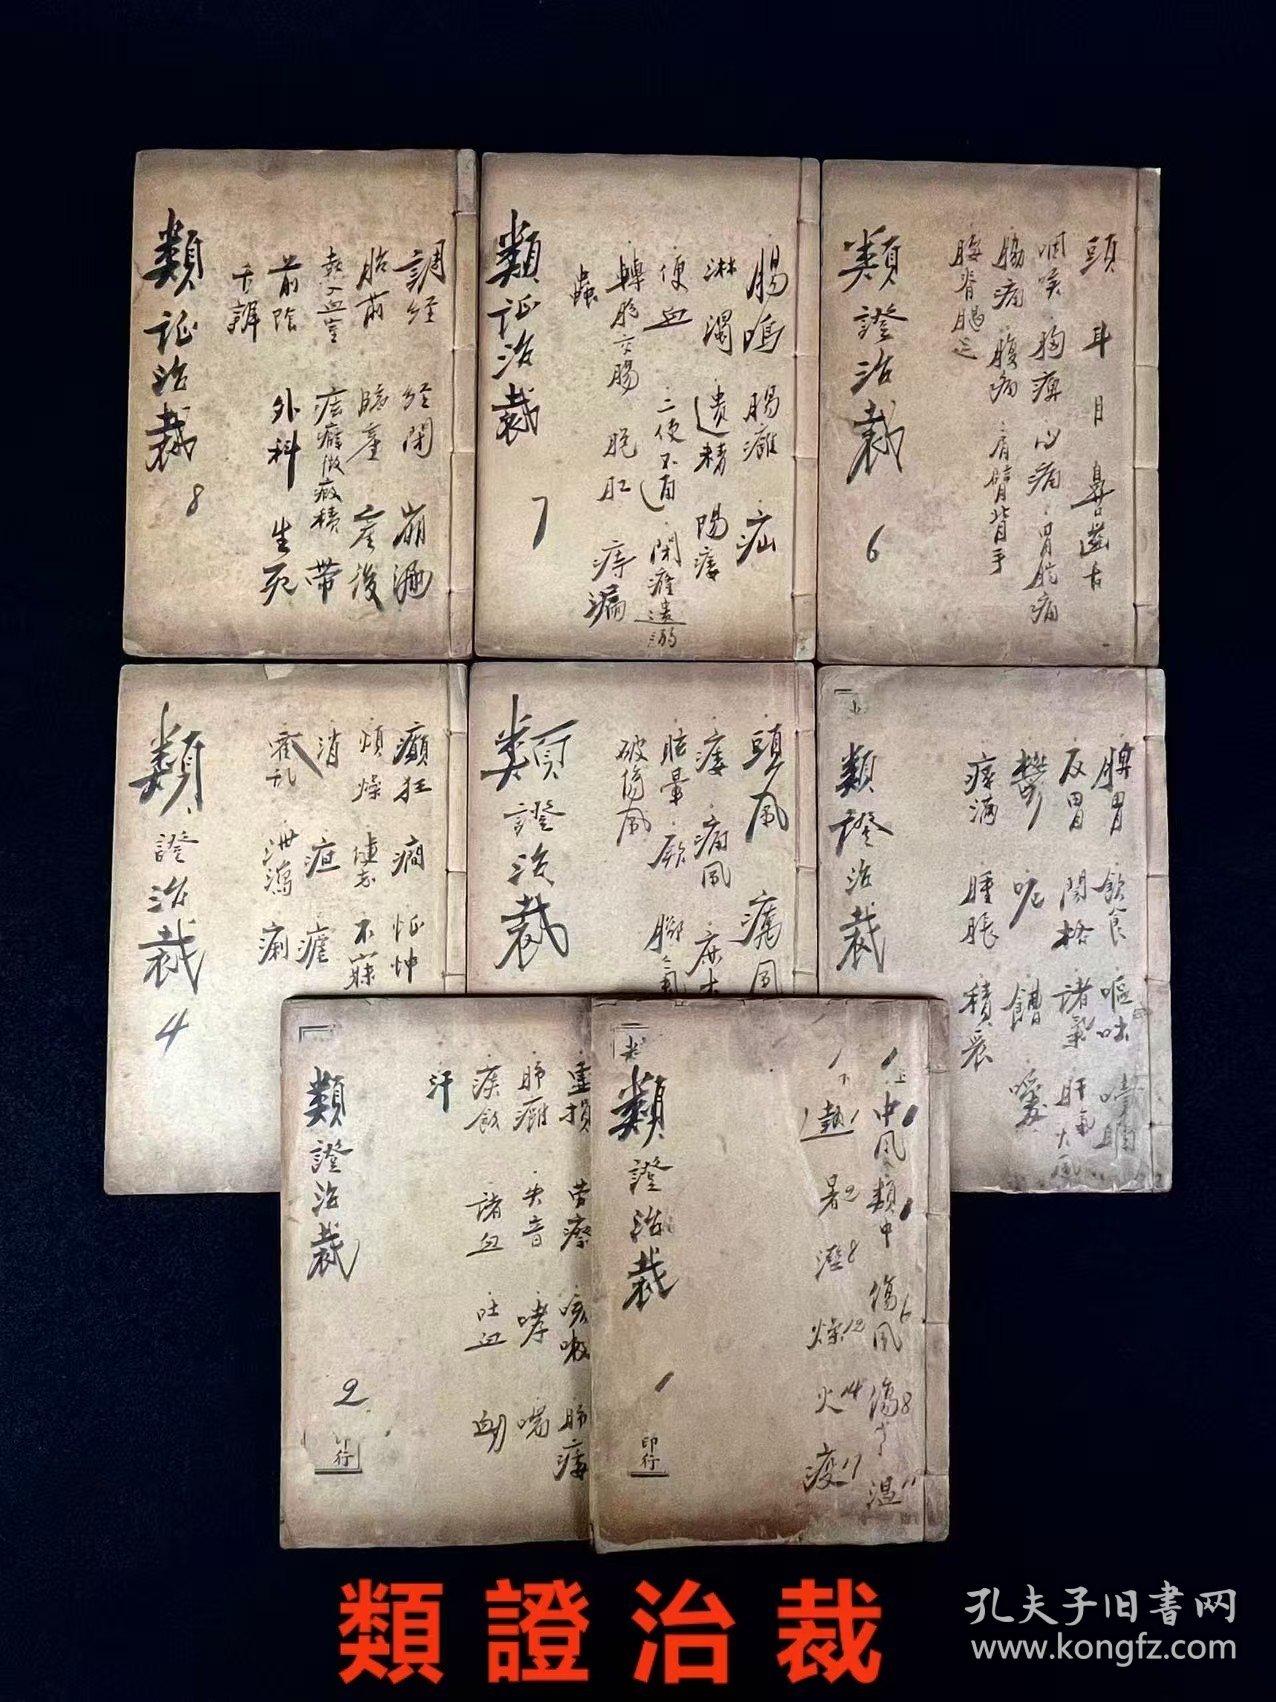 類证治裁
8
調经 经闭 崩漏
胎前 臨產 產後
熱入血室
帶
前陰 外科 生死
舌辨
類证治裁
7
腸鳴 腸癰 疝
淋濁 遺精 陽痿
便血 二便不通 閉癃遺溺
轉胞交腸 脱肛 痔漏
蟲
類證治裁
6
頭 耳 目 鼻口齒舌
咽喉 胸痺 心痛 胃脘痛
脇痛 腹痛 肩臂背手
腰脊腿足
類證治裁
4
癲狂 癇 怔忡
煩燥 健忘 不寐
消 疸 瘧
霍乱 泄瀉 痢
類證治裁
頭風 癘風
痿 痛風 麻木
眩暈 厥 脚氣
破傷風
類證治裁
脾胃 飲食 嘔吐 噎膈
反胃 関格 諸氣 肝氣
鬱 呃 嘈 噯
痞滿 腫脹 積聚
類證治裁
2
印行
虛損 劳瘵 咳嗽 肺痿
肺癰 失音 哮 喘
痰飲 諸血 吐血 衄
汗
類證治裁
1
印行
上 中风 類中 傷風 6 傷寒 8 温 11
下 熱 暑 2 溼 8 燥 12 火 14 疫 17
類證治裁
孔夫子旧书网
www.kongfz.com